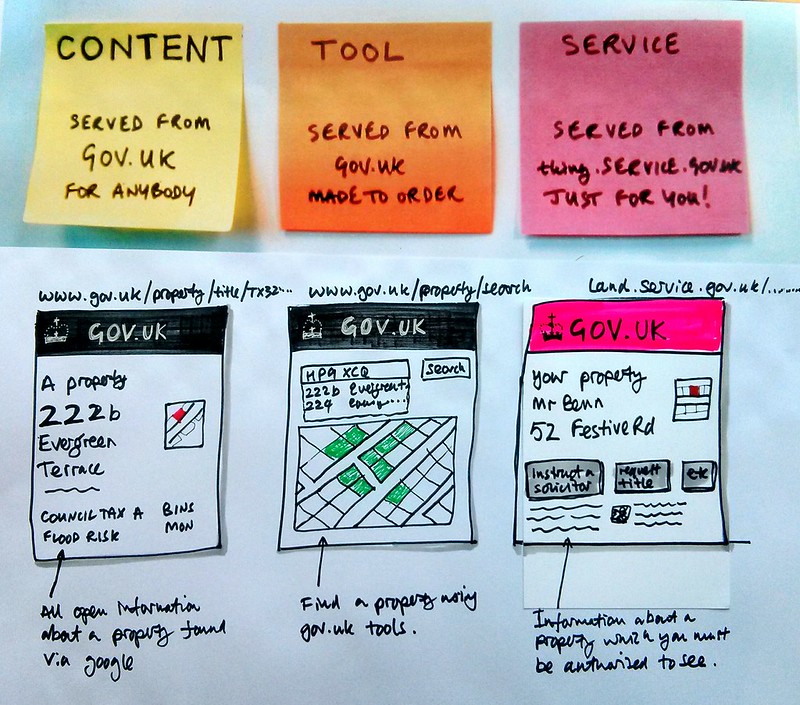 CONTENT
SERVED FROM
GOV.UK
FOR ANYBODY
TOOL
SERVED FROM
GOV.UK
MADE TO ORDER
SERVICE
SERVED FROM
thing.SERVICE.GOV.UK
JUST FOR YOU!
www.gov.uk/property/title/TX32...
GOV.UK
A property
222b
Evergreen
Terrace
COUNCIL TAX A
FLOOD RISK
BINS
MON
All open information
about a property found
via google
www.gov.uk/property/search
GOV.UK
HP9 XCQ
Search
222b Evergreen
224
Find a property using
gov.uk tools.
land.service.gov.uk/.......
GOV.UK
Your property
Mr Benn
52 Festive Rd
instruct a
solicitor
request
title
etc
Information about a
property which you must
be authorized to see.